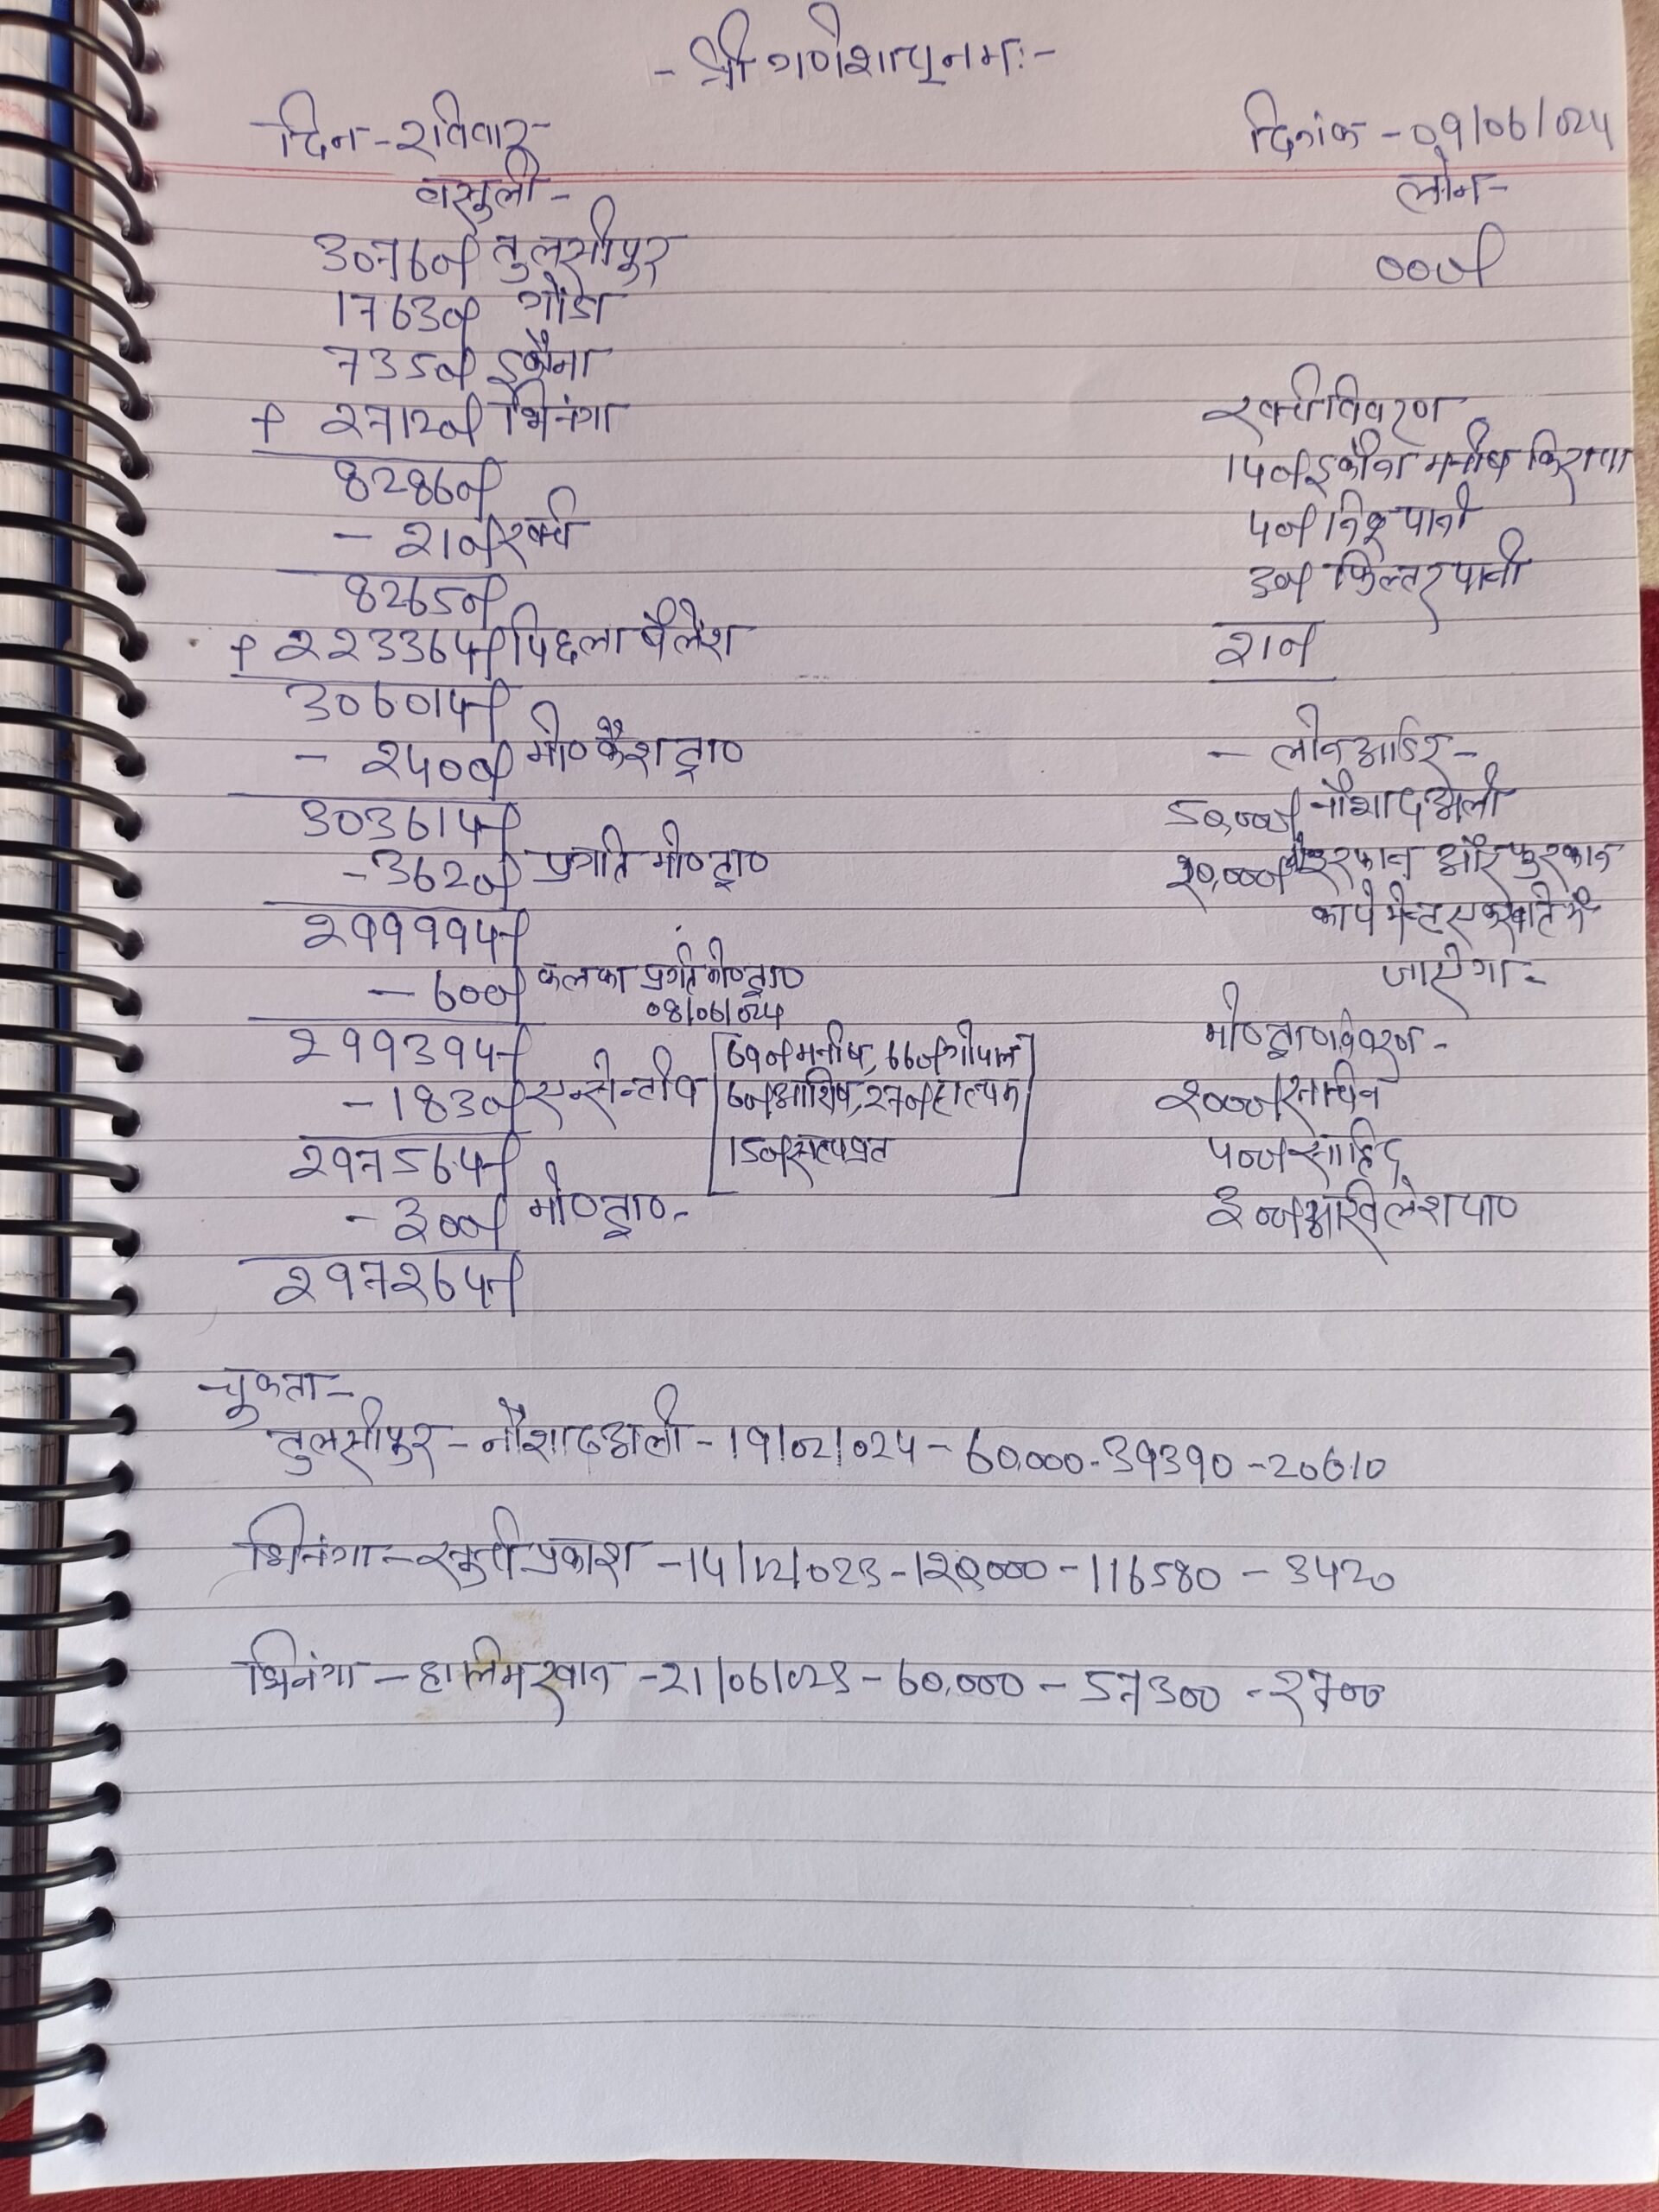 - श्री गणेशाय नमः -
दिन - रविवार
दिनांक - 09/06/024
वसुली -
लोन -
30760/- तुलसीपुर
00/-
17630/- गोंडा
7350/- इकौना
+ 27120/- भिनंगा
82860/-
- 210/- खर्च
82650/-
+ 223364/- पिछला बैलेंश
306014/-
- 2400/- मो० कैश ट्रा०
303614/-
- 3620/- प्रगति मो० ट्रा०
299994/-
- 600/- कल का प्रगति मो० ट्रा०
08/06/024
299394/-
- 1830/- इन्सेन्टीव
[690/- मनीष, 660/- गोपाल
60/- आशिष, 270/- सत्यम
150/- सत्यप्रत]
297564/-
- 300/- मो० ट्रा० -
297264/-
खर्च विवरण
140/- इकौना मनीष किराया
40/- पानी
30/- फिल्टर पानी
210/-
- लोन आर्डर -
50,000/- नौशाद अली
20,000/- इरफान और फुरकान
का पेमेन्ट एक खाते में
जाएगा -
मो० ट्रा० विवरण -
2000/- सचिन
400/- साहिद
300/- अखिलेश पा०
चुकता -
तुलसीपुर - नौशाद अली - 19/02/024 - 60,000 - 39390 - 20610
भिनंगा - प्रकाश - 14/12/023 - 120,000 - 116580 - 3420
भिनंगा - हालिम खान - 21/06/023 - 60,000 - 57300 - 2700